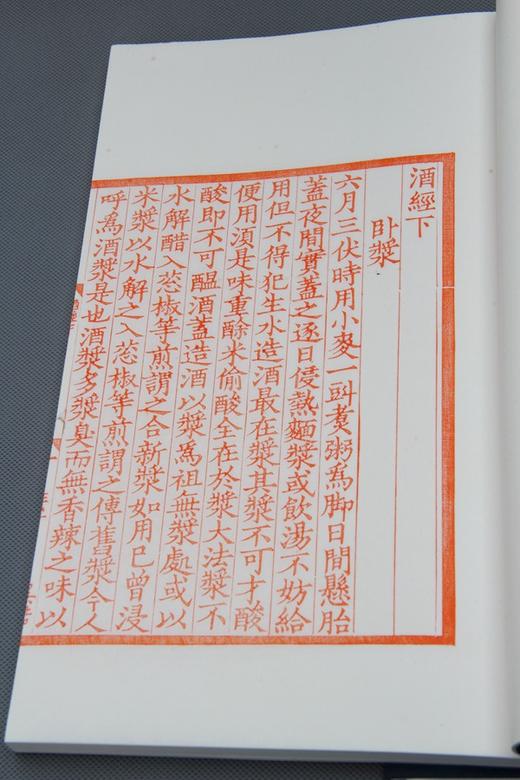 酒經下
卧漿
六月三伏時用小麥一㪷煮粥爲脚日間懸胎
蓋夜間實蓋之逐日侵熱麵漿或飲湯不妨給
用但不得犯生水造酒最在漿其漿不可才酸
便用須是味重酴米偷酸全在於漿大法漿不
酸即不可醞酒蓋造酒以漿爲祖無漿處或以
水解醋入葱椒等煎謂之合新漿如用已曾浸
米漿以水解之入葱椒等煎謂之傳舊漿今人
呼爲酒漿是也酒漿多漿臭而無香辣之味以